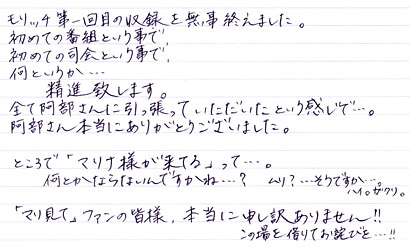 モリッチ第一回目の収録を無事終えました。
初めての番組という事で、
初めての司会という事で、
何というか…
精進致します。
全て阿部さんに引っ張っていただいたという感じで…。
阿部さん本当にありがとうございました。
ところで「マリナ様が来てる」って…。
何とかならないんですかね…? ムリ?…そうですか…。
ハイ。ザクリ。
「マリ見て」ファンの皆様、本当に申し訳ありません!!
この場を借りてお詫びを…!!